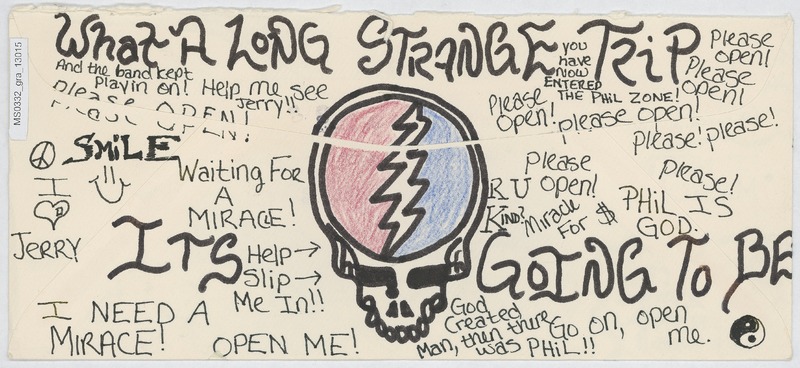 MS0332_gra_13015
What A LONG STRANGE TRiP
you
have
now
ENTERED
THE PHiL ZONE!
Please
open!
Please
OPEN!
And the band kept
playin on!
Help me see
Jerry!!
Please OPEN!
Please
Open!
please open!
Please! please!
SMiLE
I
JERRY
Waiting For
A
MIRACE!
R U
KiND?
please
Open!
Miracle
For $
Please!
PHiL IS
GOD.
ITS
GOING TO BE
Help →
Slip →
Me In!!
I NEED A
MIRACE!
OPEN ME!
God
Created
Man, then there
was PHiL!!
Go on, open
me.